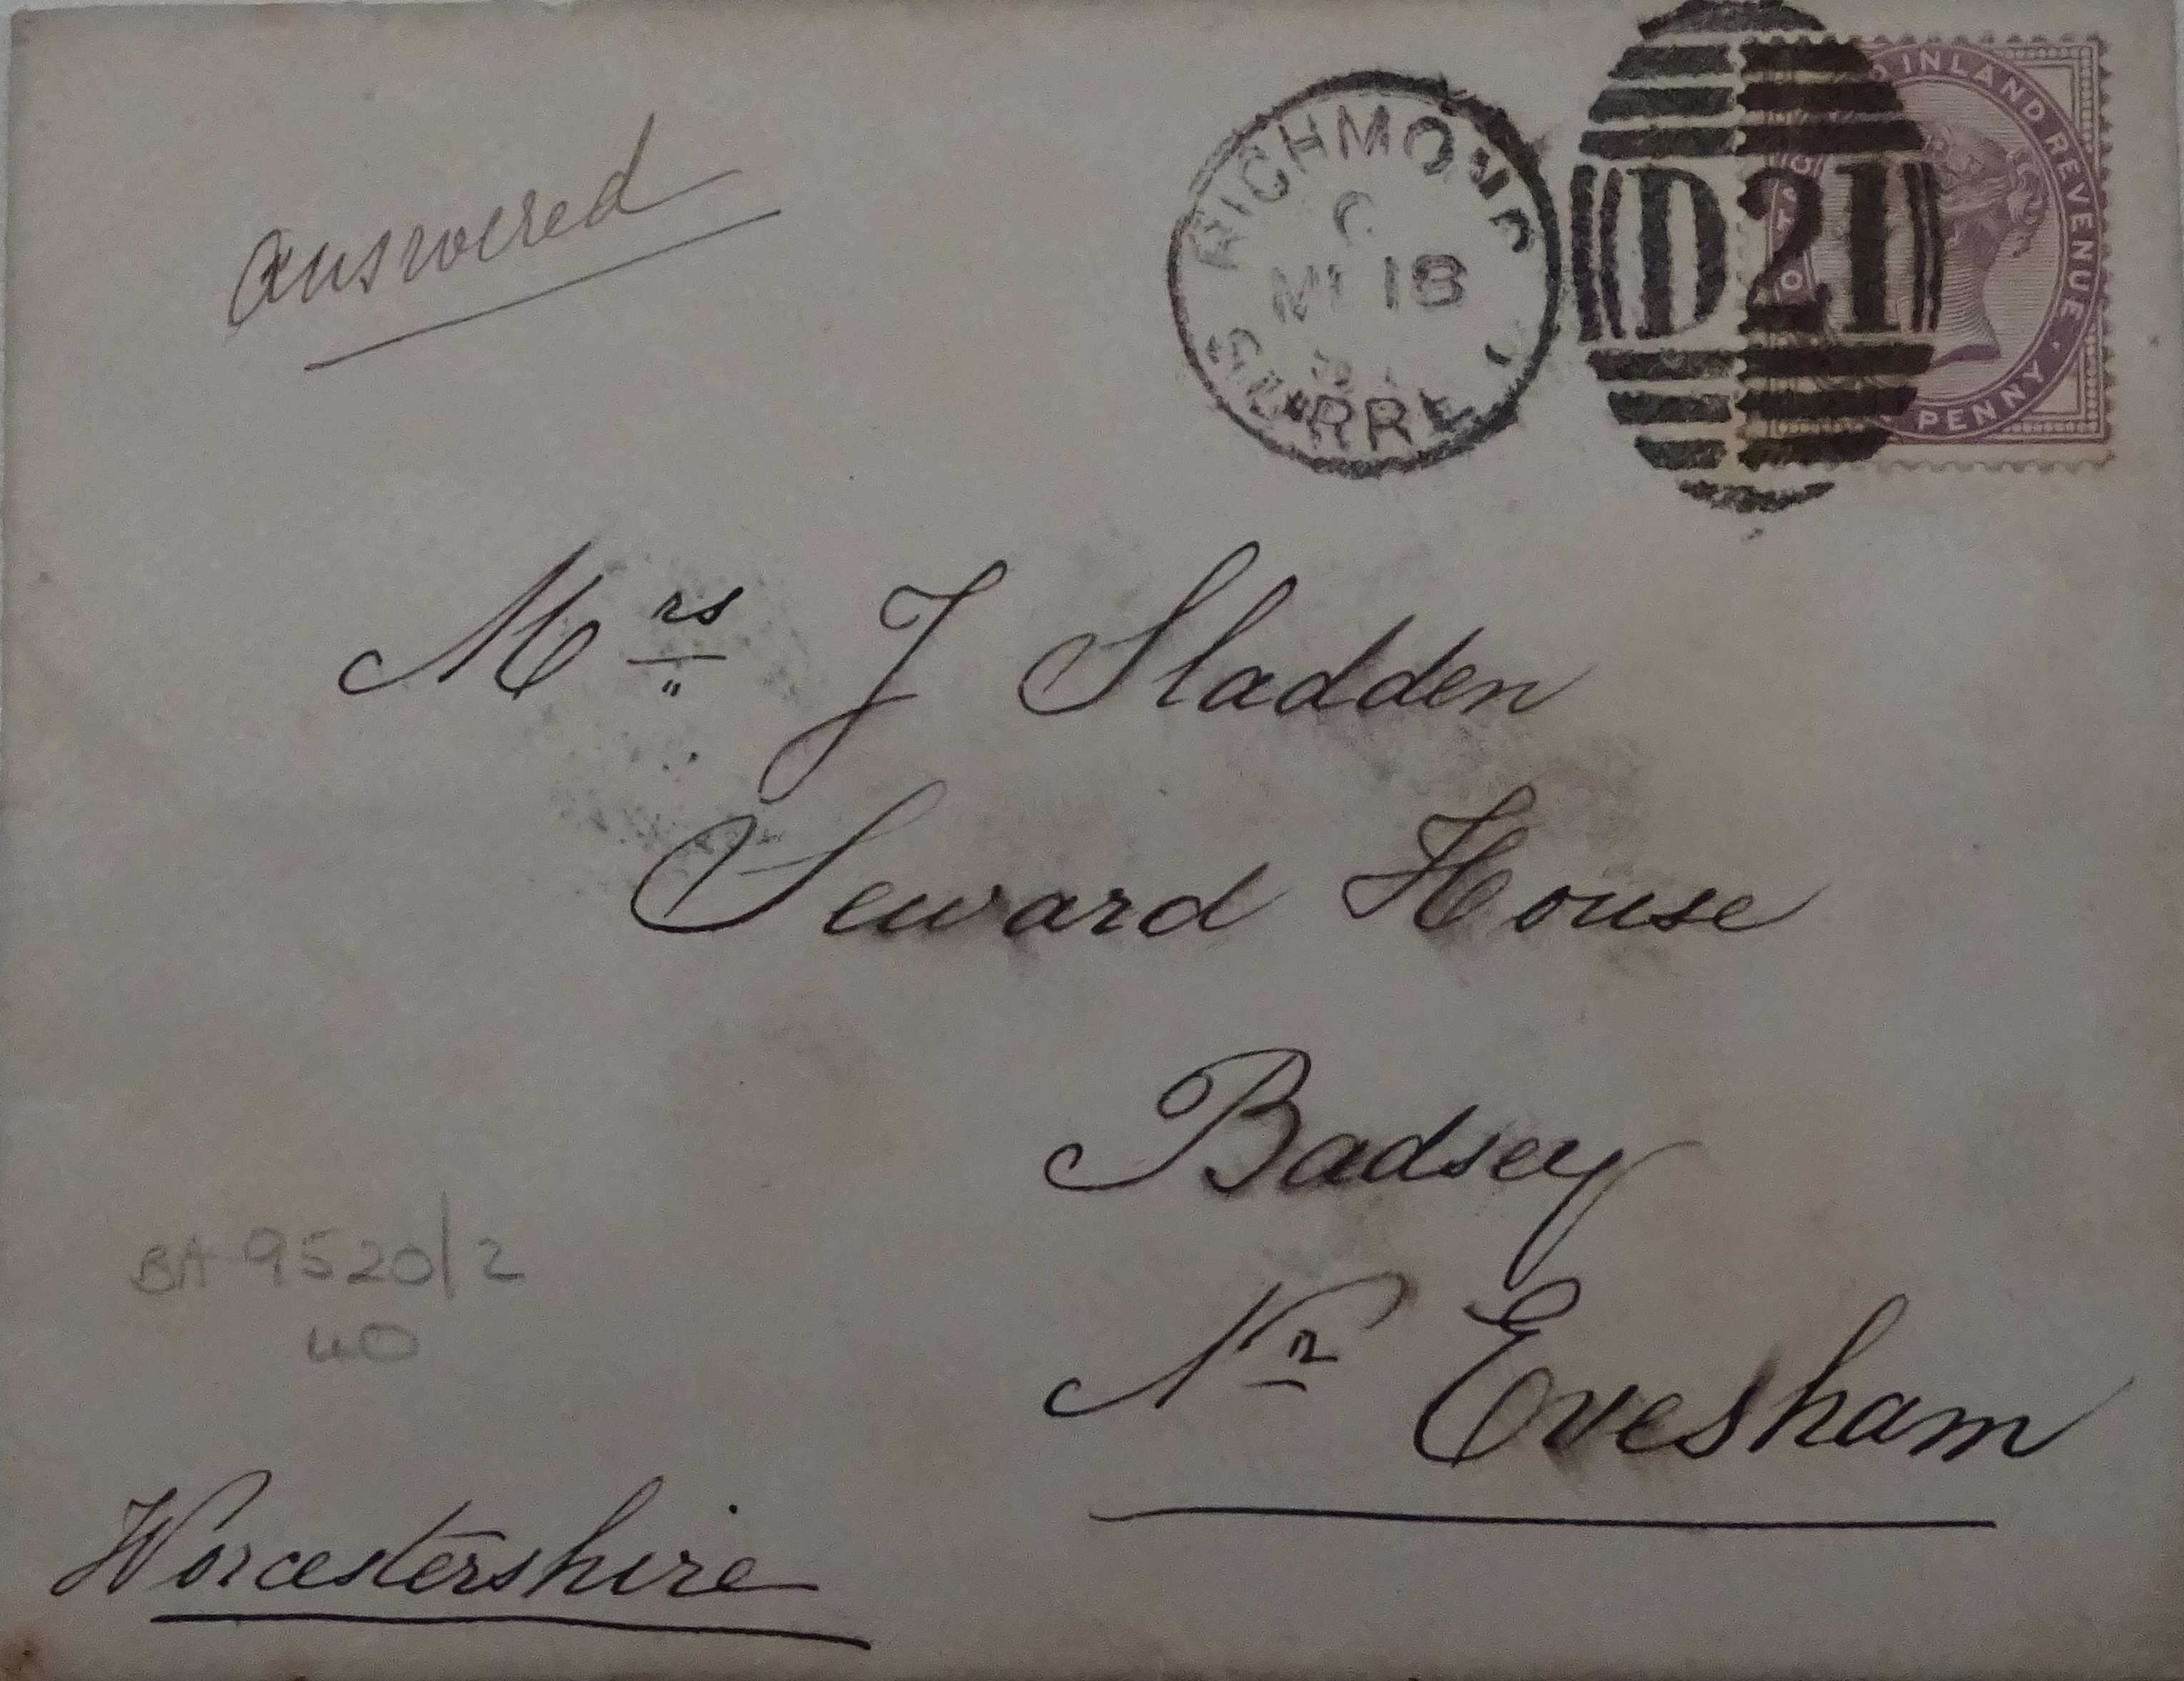 answered
RICHMOND
C
18
SURREY
D21
INLAND REVENUE
PENNY
Mrs J Sladden
Seward House
Badsey
Nr Evesham
Worcestershire
BA 9520/2
40